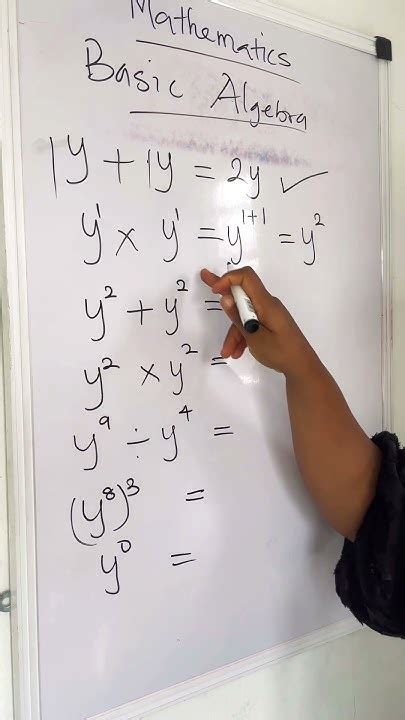 Mathematics
Basic Algebra
1y + 1y = 2y ✓
y¹ × y¹ = y¹⁺¹ = y²
y² + y² =
y² × y² =
y⁹ ÷ y⁴ =
(y⁸)³ =
y⁰ =